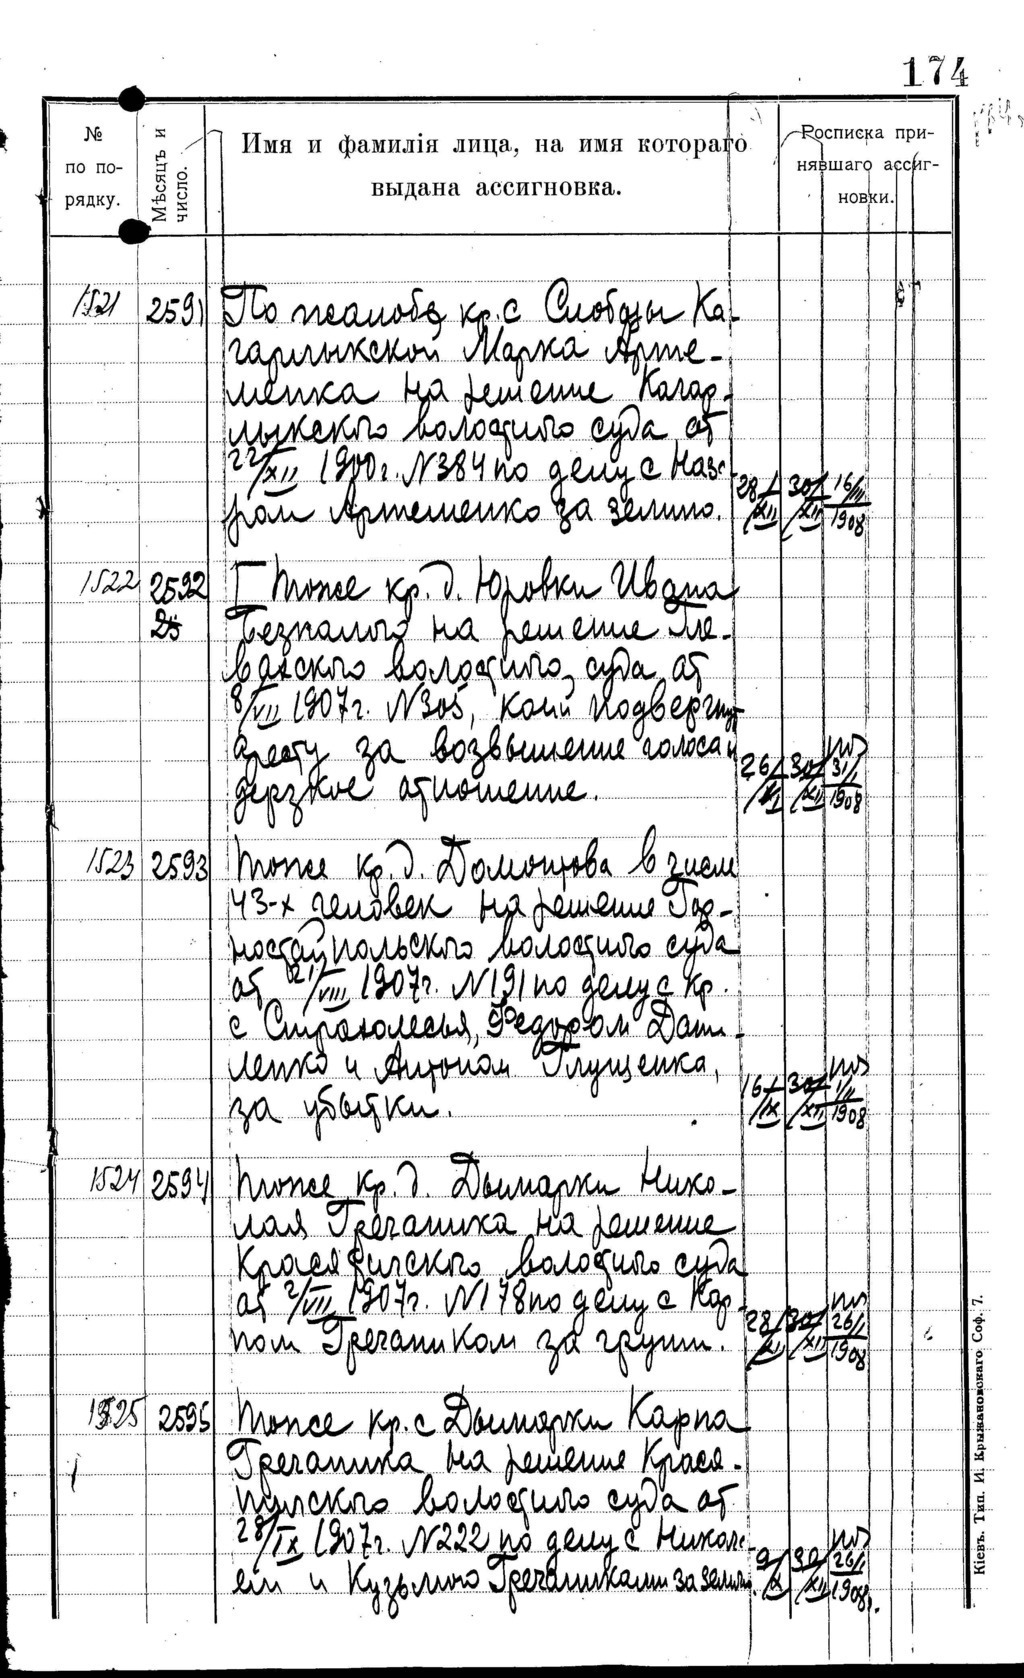 174
№ по по- рядку.
Мѣсяцъ и число.
Имя и фамилія лица, на имя котораго
выдана ассигновка.
Росписка при-
нявшаго ассиг-
новки.
1521 2591 По жалобе кр. с Слободы Ка-
гарлыкской Марка Арте-
менка на решение Кагар-
лыкского волостного суда от
22/XII 1900г. №384 по делу с Наза-
ром Артеменко за землю. 28/XII 30/XII 16/III 1908
1522 2592 Тоже кр. д. Юровки Ивана
Безпалого на решение
волостного суда от
8/VII 1907г. №305, коим подвергнут
аресту за возвышение голоса и
дерзкое отношение. 26/ 30/XII 31/I 1908
1523 2593 Тоже кр. д. Домонтова в числе
43-х человек на решение Гор-
ностайпольского волостного суда
от 21/VIII 1907г. №191 по делу с кр.
с Страхолесья, Федором Дани-
ленко и Антоном Глущенка,
за убытки. 16/IX 30/XII 1/II 1908
1524 2594 Тоже кр. д. Дымарки Нико-
лая Гречаника на решение
волостного суда
от 2/VII 1907г. №178 по делу с Кар-
пом Гречаником за грунт. 28/XI 30/XII 26/I 1908
1525 2595 Тоже кр. с Дымарки Карпа
Гречаника на решение
волостного суда от
28/IX 1907г. №222 по делу с Никола-
ем и Кузьмою Гречаниками за землю. 9/X 30/XII 26/I 1908г.
Кіевъ. Тип. И. Крыжановскаго Соф. 7.